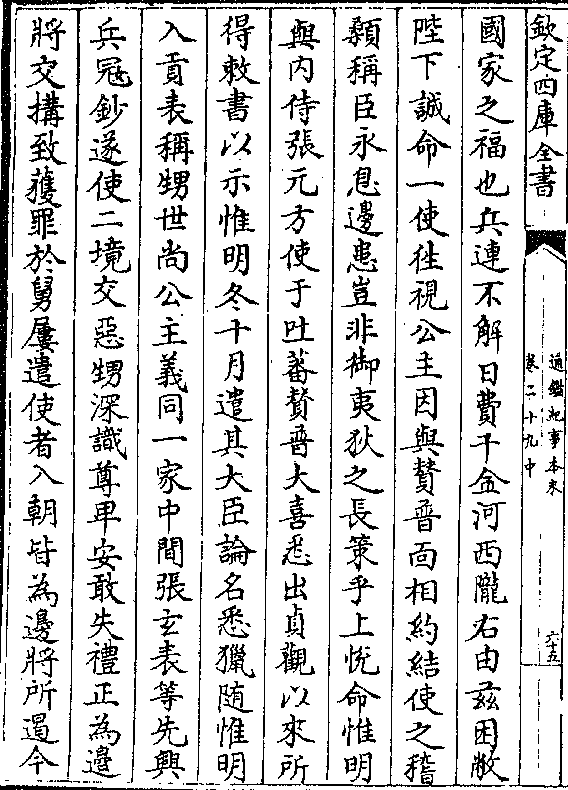 欽定四庫全書
通鑑紀事本末
卷二十九中
六十五
國家之福也兵連不解日費千金河西隴右由兹困敝
陛下誠命一使徃視公主因與賛普面相約結使之稽
顙稱臣永息邊患豈非御夷狄之長策乎上悅命惟明
與内侍張元方使于吐蕃賛普大喜悉出貞觀以來所
得敕書以示惟明冬十月遣其大臣論名悉獵随惟明
入貢表稱甥世尚公主義同一家中間張玄表等先興
兵冦鈔遂使二境交惡甥深識尊卑安敢失禮正為邊
將交搆致獲罪於舅屢遣使者入朝皆為邊將所遏今